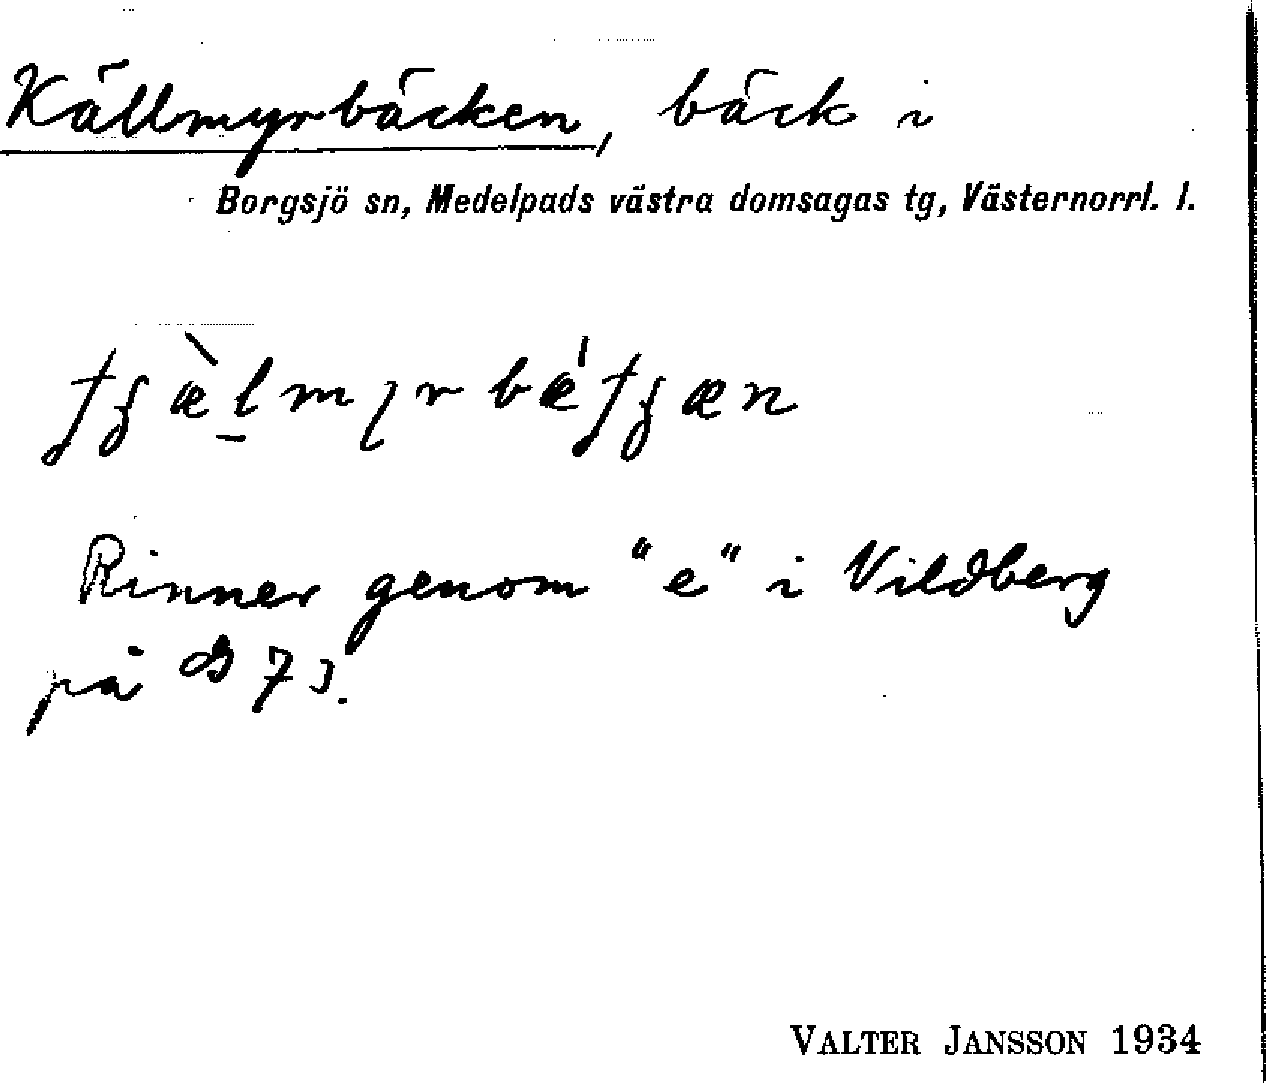 Källmyrbäcken, bäck i
Borgsjö sn, Medelpads västra domsagas tg, Västernorrl. l.
Rinner genom "e" i Vildberg
på 73.
VALTER JANSSON 1934